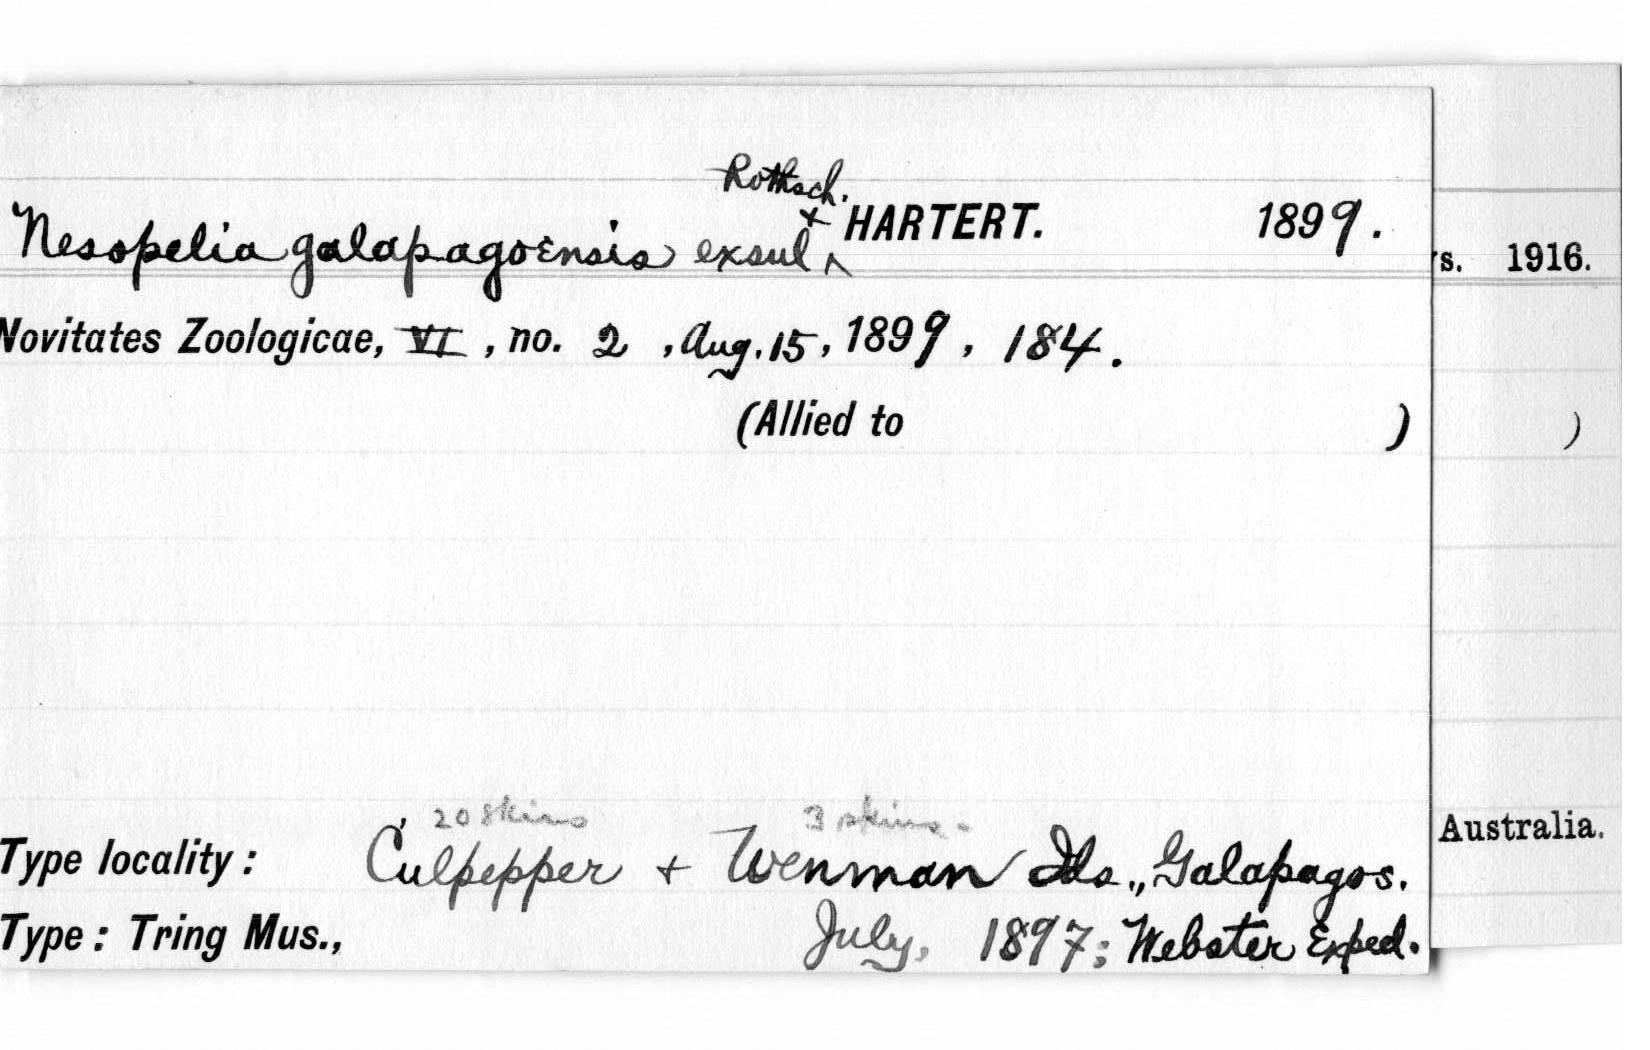 Rothsch.
Nesopelia galapagoensis exsul ^ + HARTERT. 1899.
Novitates Zoologicae, VI, no. 2, Aug. 15, 1899, 184.
(Allied to )
20 skins 3 skins.
Type locality: Culpepper + Wenman Ids., Galapagos.
Type: Tring Mus., July, 1897; Webster Exped.
s. 1916.
)
Australia.